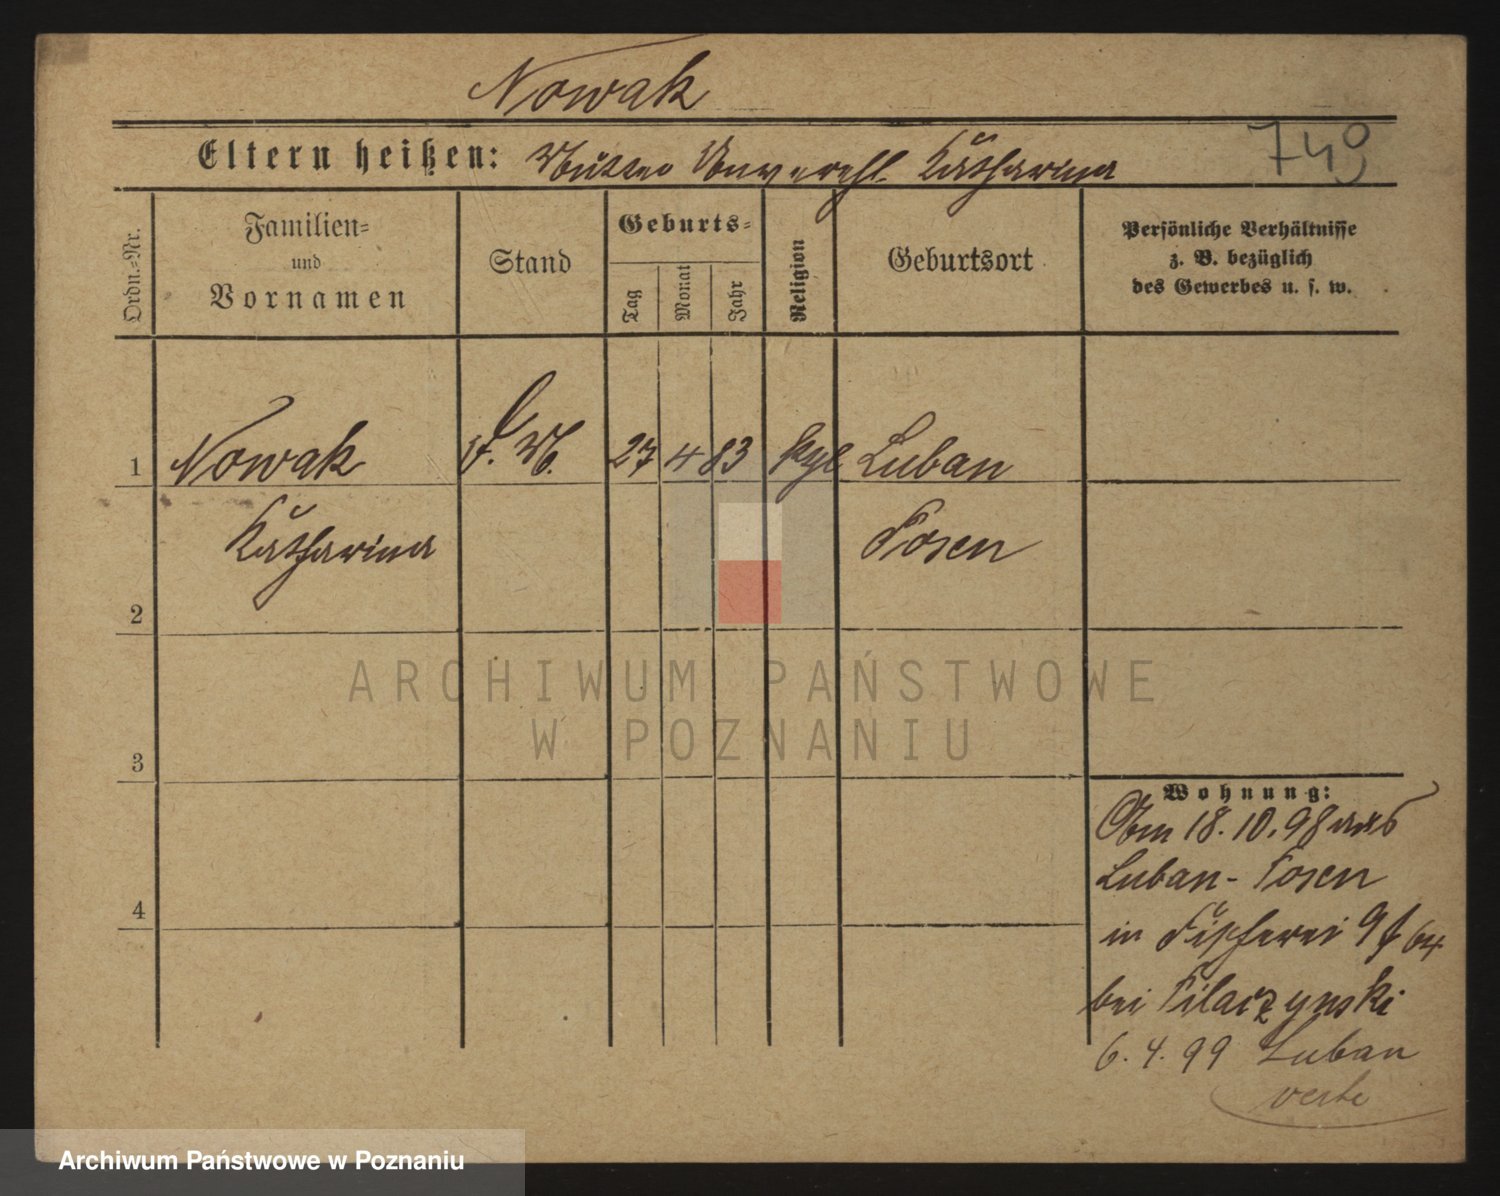 Nowak
Eltern heißen: Mutter Unverehl. Katharina
749
Ordn.-Nr.
Familien-
und
Vornamen
Stand
Geburts-
Tag
Monat
Jahr
Religion
Geburtsort
Persönliche Verhältnisse
z. B. bezüglich
des Gewerbes u. s. w.
1 Nowak D. M. 27 4 83 Kgl Luban
Katharina Posen
2
3
4
Wohnung:
Am 18. 10. 98 aus
Luban - Posen
in Fischerei 9 64
bei Pilaczynski
6. 4. 99 Luban
verte
ARCHIWUM PAŃSTWOWE
W POZNANIU
Archiwum Państwowe w Poznaniu